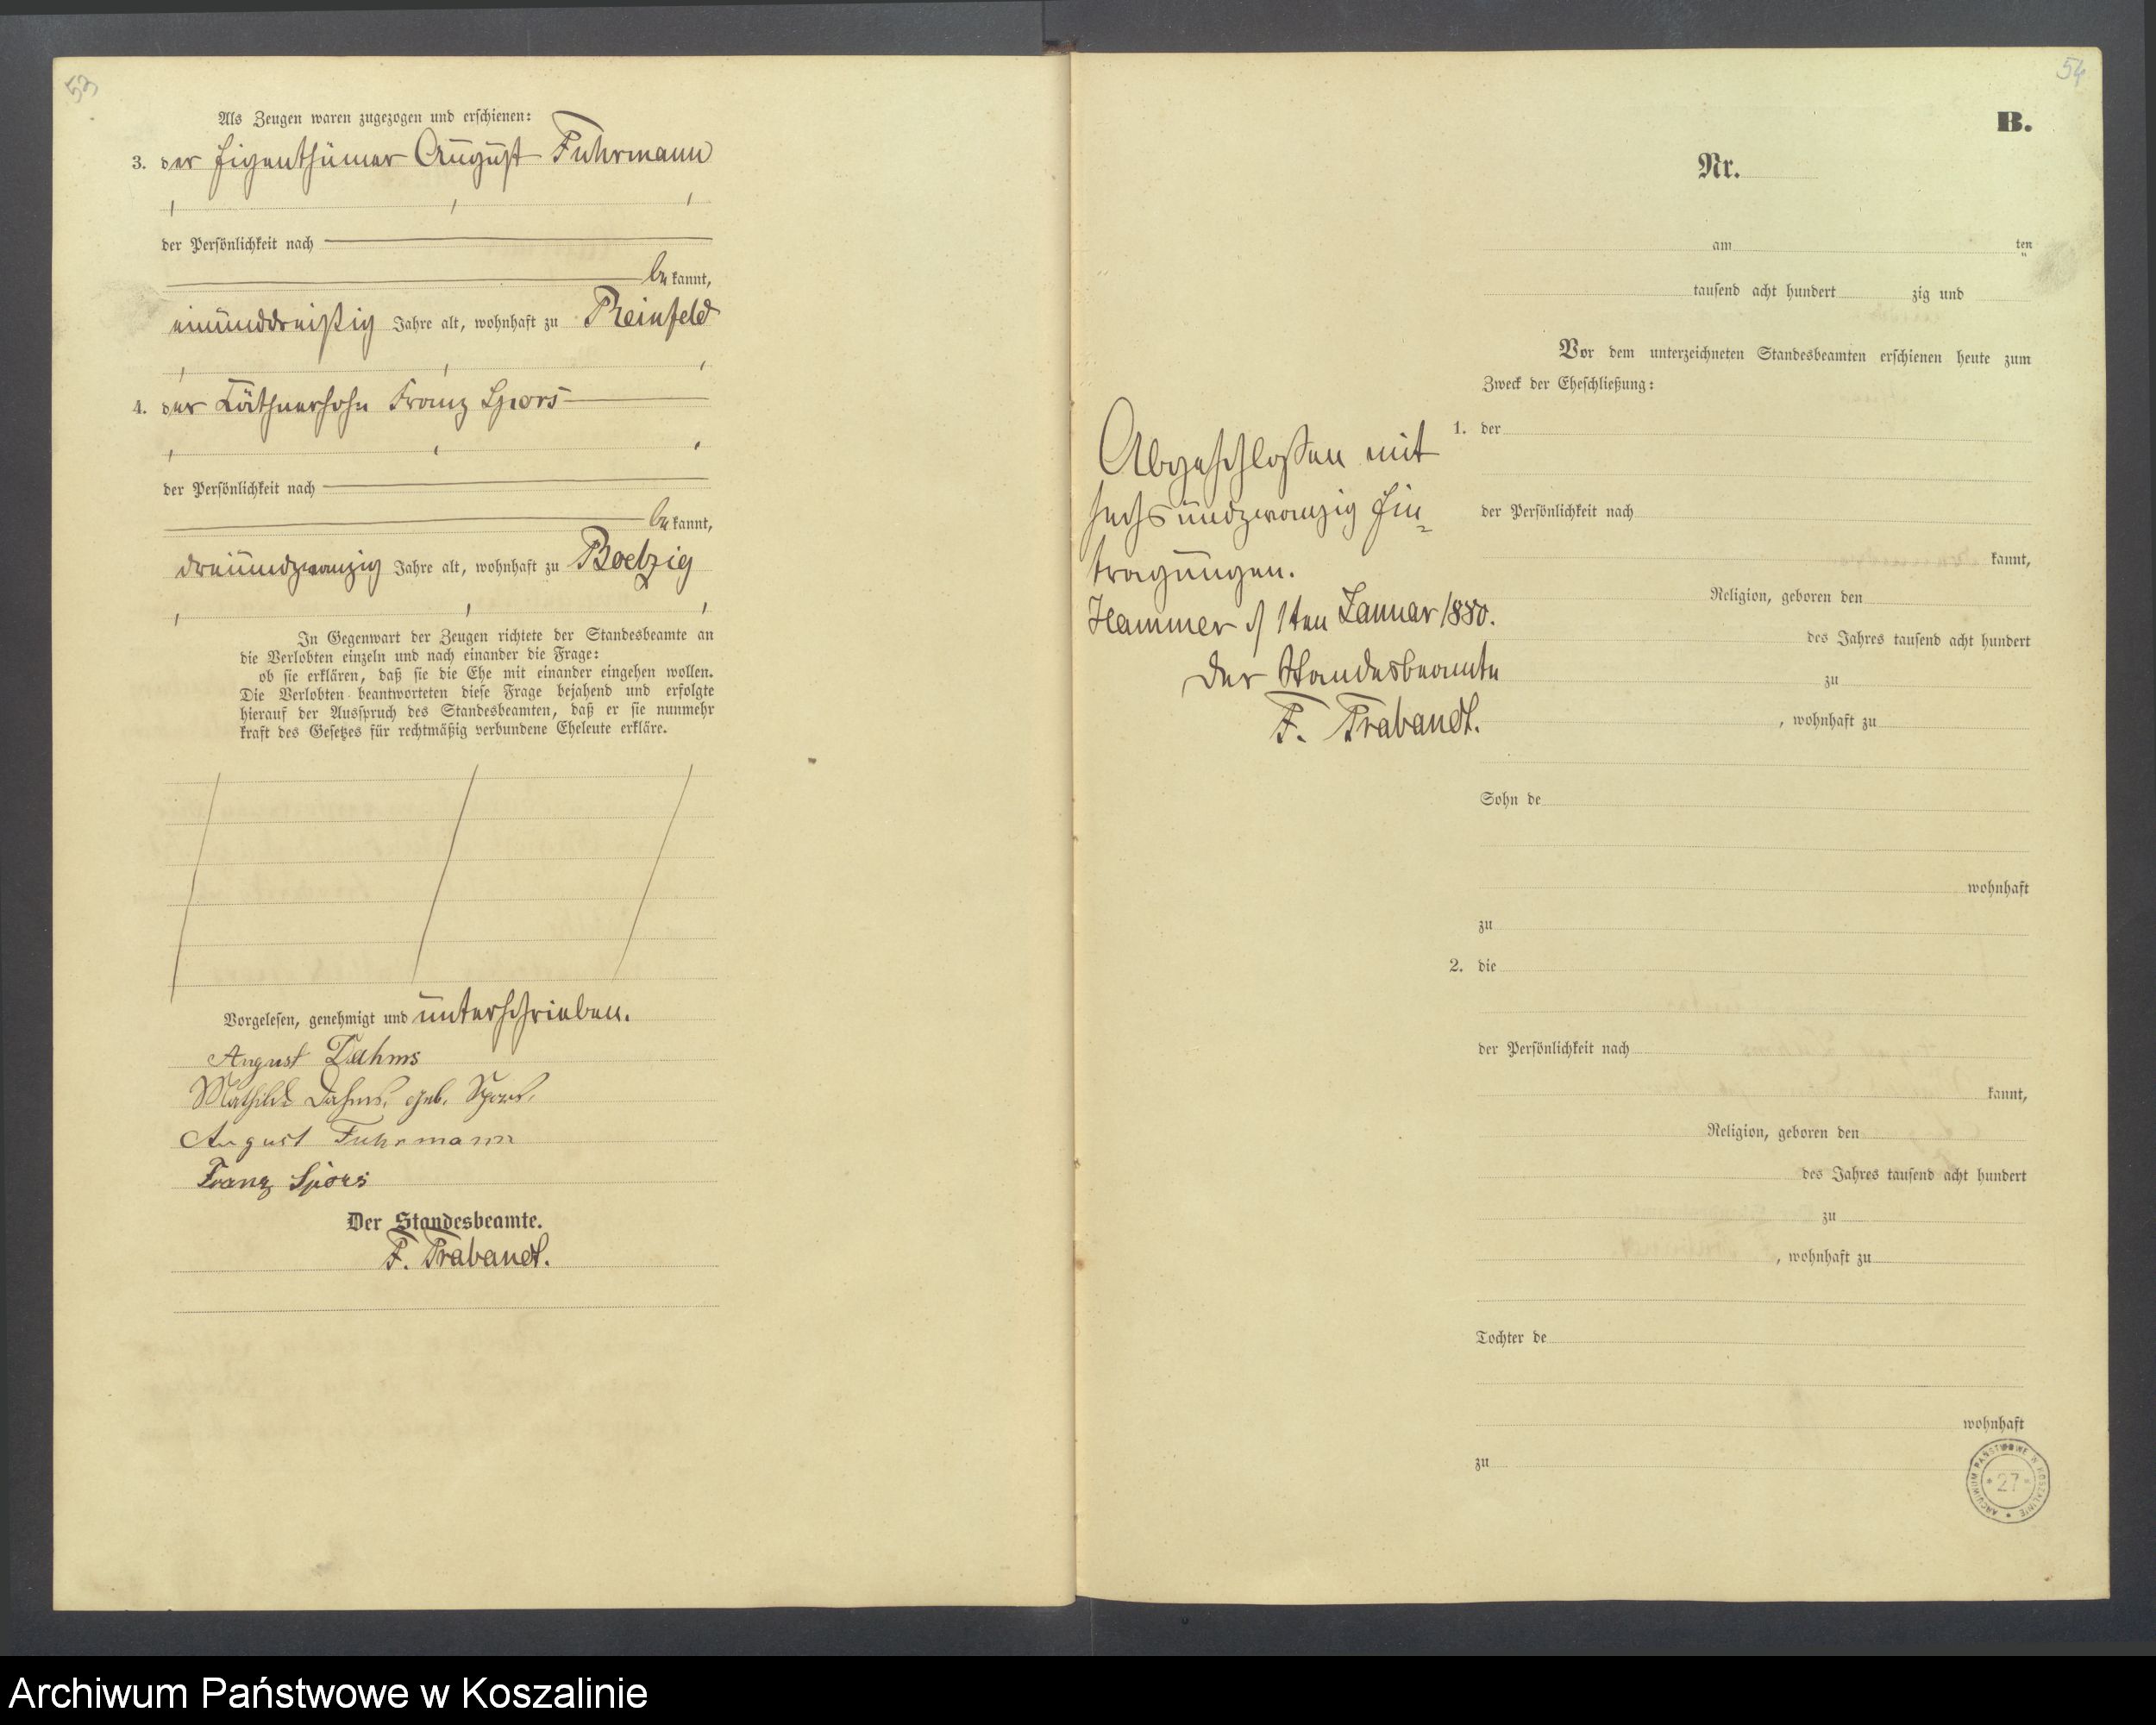 53
Als Zeugen waren zugezogen und erschienen:
3. der Eigenthümer August Fuhrmann
der Persönlichkeit nach
bekannt,
einunddreißig Jahre alt, wohnhaft zu Reinfeld
4. der Käthnersohn Franz Spors
der Persönlichkeit nach
bekannt,
dreiundzwanzig Jahre alt, wohnhaft zu
In Gegenwart der Zeugen richtete der Standesbeamte an
die Verlobten einzeln und nach einander die Frage:
ob sie erklären, daß sie die Ehe mit einander eingehen wollen.
Die Verlobten beantworteten diese Frage bejahend und erfolgte
hierauf der Ausspruch des Standesbeamten, daß er sie nunmehr
kraft des Gesetzes für rechtmäßig verbundene Eheleute erkläre.
Vorgelesen, genehmigt und unterschrieben.
August Dahms
Mathilde Dahms, geb. Spors.
August Fuhrmann
Franz Spors
Der Standesbeamte.
F. Trabandt.
54
B.
Nr.
am ten
tausend acht hundert zig und
Vor dem unterzeichneten Standesbeamten erschienen heute zum
Zweck der Eheschließung:
1. der
der Persönlichkeit nach
kannt,
Religion, geboren den
des Jahres tausend acht hundert
zu
, wohnhaft zu
Sohn de
wohnhaft
zu
2. die
der Persönlichkeit nach
kannt,
Religion, geboren den
des Jahres tausend acht hundert
zu
, wohnhaft zu
Tochter de
wohnhaft
zu
Abgeschlossen mit
sechsundzwanzig Ein=
tragungen.
Hammer d/ 1ten Januar 1880.
Der Standesbeamte
F. Trabandt.
ARCHIWUM PAŃSTWOWE W KOSZALINIE
* 27 *
Archiwum Państwowe w Koszalinie